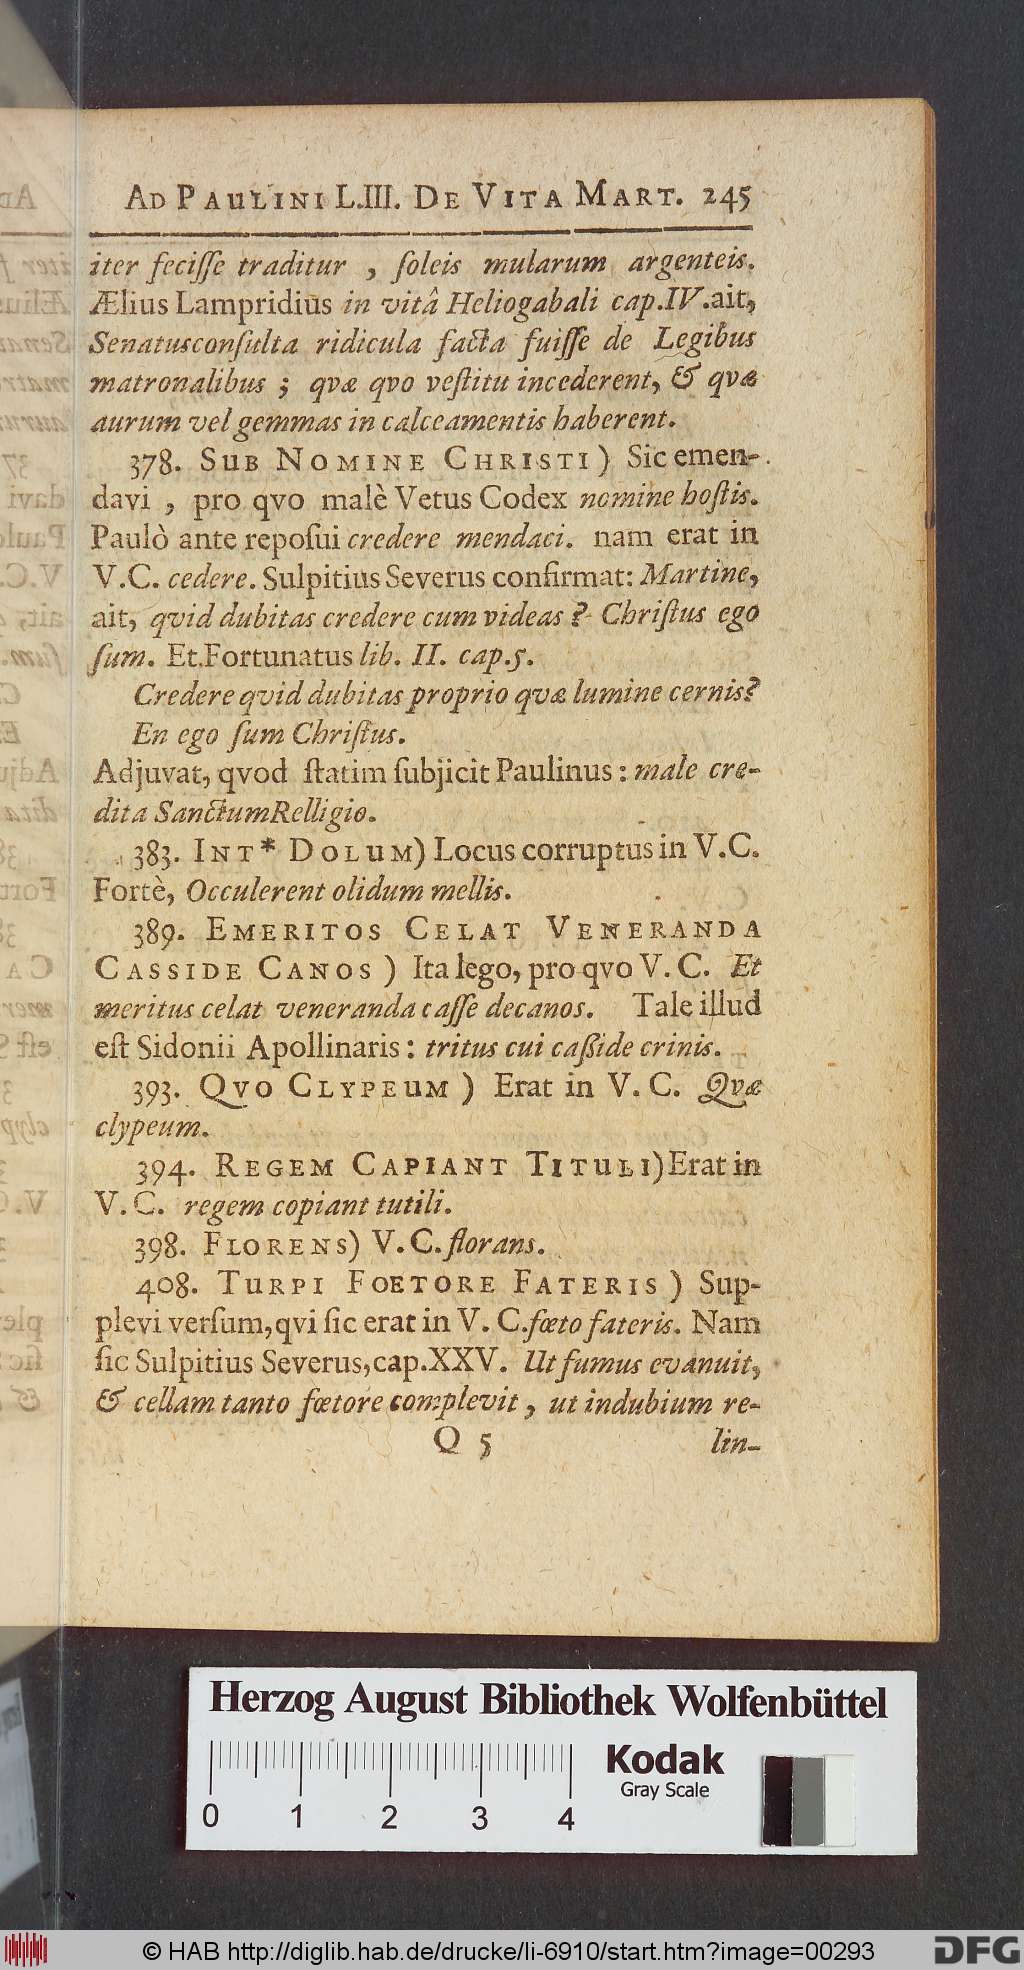 AD PAULINI L.III. DE VITA MART. 245
iter feciſſe traditur , ſoleis mularum argenteis.
Ælius Lampridius in vitâ Heliogabali cap.IV.ait,
Senatusconſulta ridicula facta fuiſſe de Legibus
matronalibus ; qvæ qvo veſtitu incederent, & qvæ
aurum vel gemmas in calceamentis haberent.
378. SUB NOMINE CHRISTI) Sic emen-
davi , pro qvo malè Vetus Codex nomine hoſtis.
Paulò ante repoſui credere mendaci. nam erat in
V.C. cedere. Sulpitius Severus confirmat: Martine,
ait, qvid dubitas credere cum videas ? Chriſtus ego
ſum. Et Fortunatus lib. II. cap.5.
Credere qvid dubitas proprio qvæ lumine cernis?
En ego ſum Chriſtus.
Adjuvat, qvod ſtatim ſubjicit Paulinus: male cre-
dita Sanctum Relligio.
383. INT* DOLUM) Locus corruptus in V.C.
Fortè, Occulerent olidum mellis.
389. EMERITOS CELAT VENERANDA
CASSIDE CANOS ) Ita lego, pro qvo V. C. Et
meritus celat veneranda caſſe decanos. Tale illud
eſt Sidonii Apollinaris: tritus cui caßide crinis.
393. QVO CLYPEUM ) Erat in V. C. Qvæ
clypeum.
394. REGEM CAPIANT TITULI) Erat in
V. C. regem copiant tutili.
398. FLORENS) V.C. florans.
408. TURPI FOETORE FATERIS ) Sup-
plevi verſum, qvi ſic erat in V. C. fœto fateris. Nam
ſic Sulpitius Severus, cap.XXV. Ut fumus evanuit,
& cellam tanto fœtore complevit, ut indubium re-
Q 5 lin-
Herzog August Bibliothek Wolfenbüttel
Kodak
Gray Scale
0 1 2 3 4
© HAB http://diglib.hab.de/drucke/li-6910/start.htm?image=00293
DFG